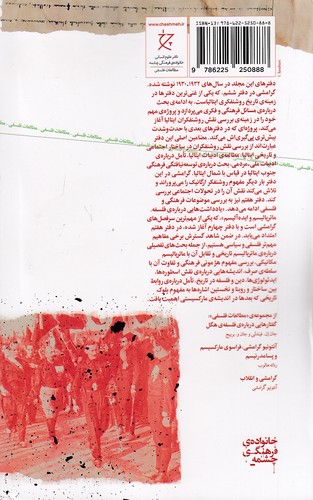 www.cheshmeh.ir
ISBN-13: 978-622-5250-88-8
9 786225 250888
دفتر علوم انسانی
خانواده‌ی فرهنگی چشمه
مطالعات فلسفی
دفترهای این مجلد در سال‌های ۱۹۳۲-۱۹۳۰ نوشته شده.
گرامشی در دفتر ششم، که یکی از غنی‌ترین دفترها در
زمینه‌ی تاریخ روشنفکری ایتالیاست، به ادامه‌ی بحث
درباره‌ی مسائل فرهنگی و فکری می‌پردازد و پروژه‌ی مهم
خود را در زمینه‌ی بررسی نقش روشنفکران ایتالیا آغاز
می‌کند، پروژه‌ای که در دفترهای بعدی با حدت‌وشدت
بیش‌تری پی‌گیری‌اش می‌کند. مضامین اصلی این دفتر
عبارت‌اند از بررسی نقش روشنفکران در ساختار اجتماعی
و تاریخی ایتالیا، مطالعه‌ی ادبیات ایتالیا، تأمل درباره‌ی
ادبیات ملی-مردمی، بحث درباره‌ی توسعه‌نیافتگی فرهنگی
جنوب ایتالیا در قیاس با شمال ایتالیا. گرامشی در این
دفتر بار دیگر مفهوم روشنفکر ارگانیک را می‌پروراند و
تلاش می‌کند نقش آن را در تحولات اجتماعی بررسی
کند. دفتر هفتم نیز به بررسی موضوعات فرهنگی و
فلسفی ادامه می‌دهد. «یادداشت‌هایی درباره‌ی فلسفه،
ماتریالیسم و ایدئالیسم»، که یکی از مهم‌ترین سرفصل‌های
گرامشی است و با دفتر چهارم آغاز شده، در دفتر هفتم
امتدادی می‌یابد. در ضمن شاهد گسترش برخی مفاهیم
مهم فلسفی و سیاسی هستیم، از جمله بحث‌های تفصیلی
درباره‌ی ماتریالیسم تاریخی و تقابل آن با ماتریالیسم
مکانیکی، بررسی مفهوم هژمونی فرهنگی و تفاوت آن با
سلطه‌ی صرف، اندیشه‌هایی درباره‌ی نقش اسطوره‌ها،
ایدئولوژی‌ها، دین و فلسفه در تاریخ، تأمل درباره‌ی روابط
بین ساختار و روبنا و نخستین اشاره‌ها به مفهوم بلوک
تاریخی که بعدها در اندیشه‌ی مارکسیستی اهمیت یافت.
از مجموعه‌ی «مطالعات فلسفی»:
گفتارهایی درباره‌ی فلسفه‌ی هگل
آنتونیو گرامشی، فراسوی مارکسیسم
و پسامدرنیسم
رناته هلوب
گرامشی و انقلاب
آنتونیو گرامشی
خانواده‌ی
فرهنگی
چشمه